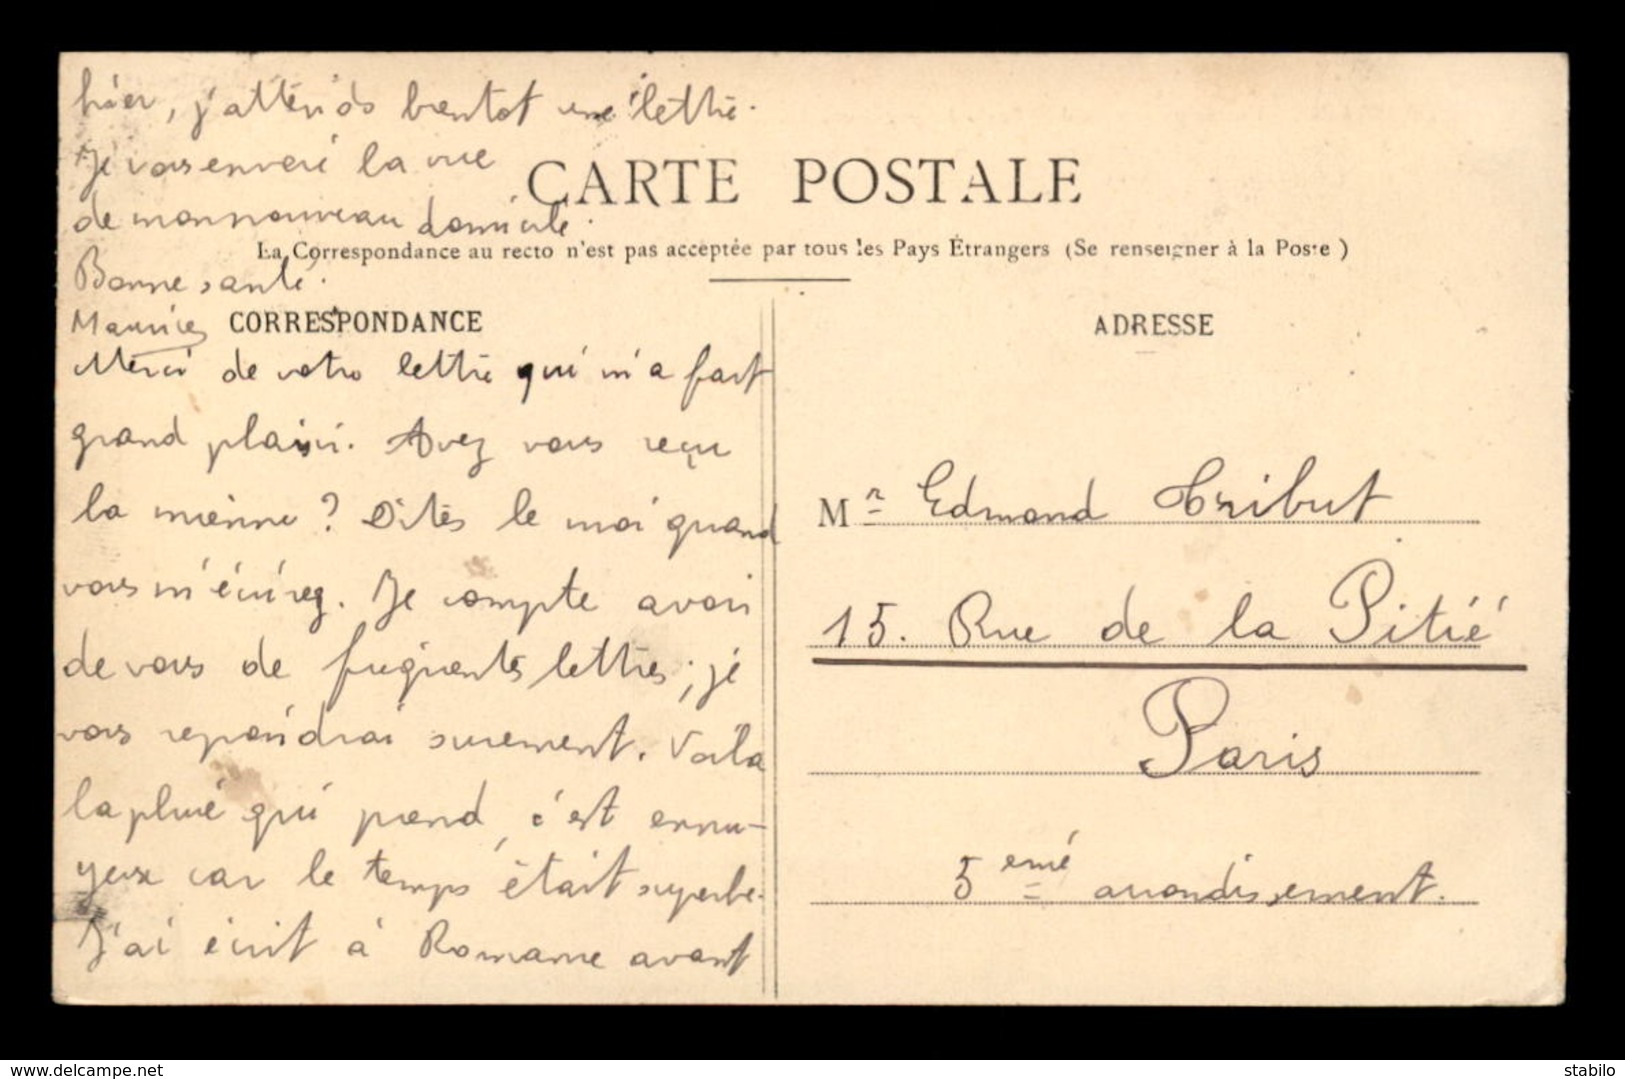 hier, j'attends bientot une lettre.
Je vous enverè la vue
de mon nouveau domicile.
Bonne santé.
Maurice
CARTE POSTALE
La Correspondance au recto n'est pas acceptée par tous les Pays Étrangers (Se renseigner à la Poste)
CORRESPONDANCE
Merci de votre lettre qui m'a fait
grand plaisir. Avez vous reçu
la mienne ? Dites le moi quand
vous m'écrirez. Je compte avoir
de vous de fréquentes lettres; je
vous repondrai surement. Voila
la pluie qui prend, c'est ennu-
yeux car le temps était superbe.
J'ai écrit à Romaine avant
ADRESSE
Mr Edmond Tribut
15. Rue de la Pitié
Paris
5 eme arrondissement.
www.delcampe.net
stabilo